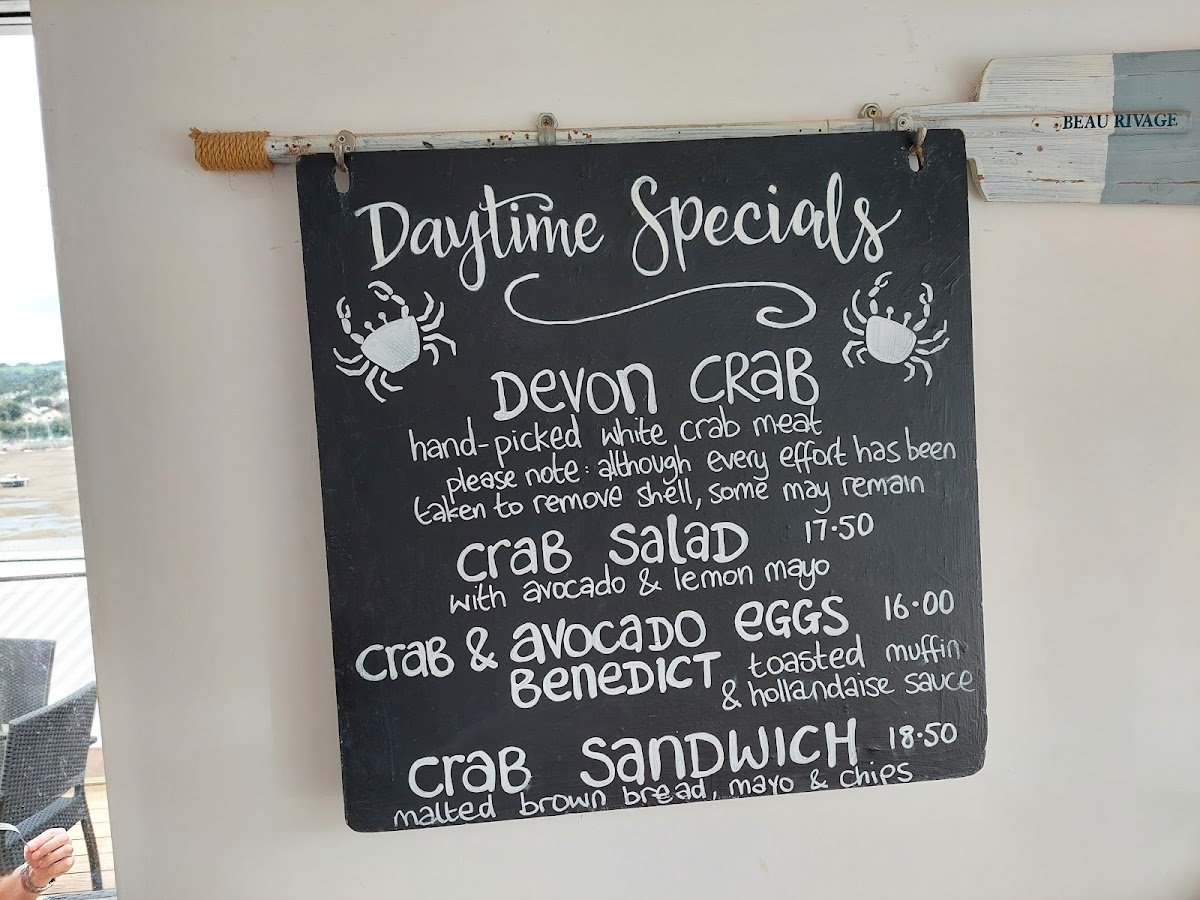 BEAU RIVAGE
Daytime Specials
Devon Crab
hand-picked white crab meat
please note: although every effort has been
taken to remove shell, some may remain
Crab Salad 17.50
with avocado & lemon mayo
Crab & avocado eggs 16.00
Benedict toasted muffin
& hollandaise sauce
Crab Sandwich 18.50
malted brown bread, mayo & chips